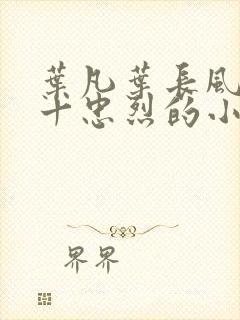 葉凡葉長風
十忠烈的小
界界